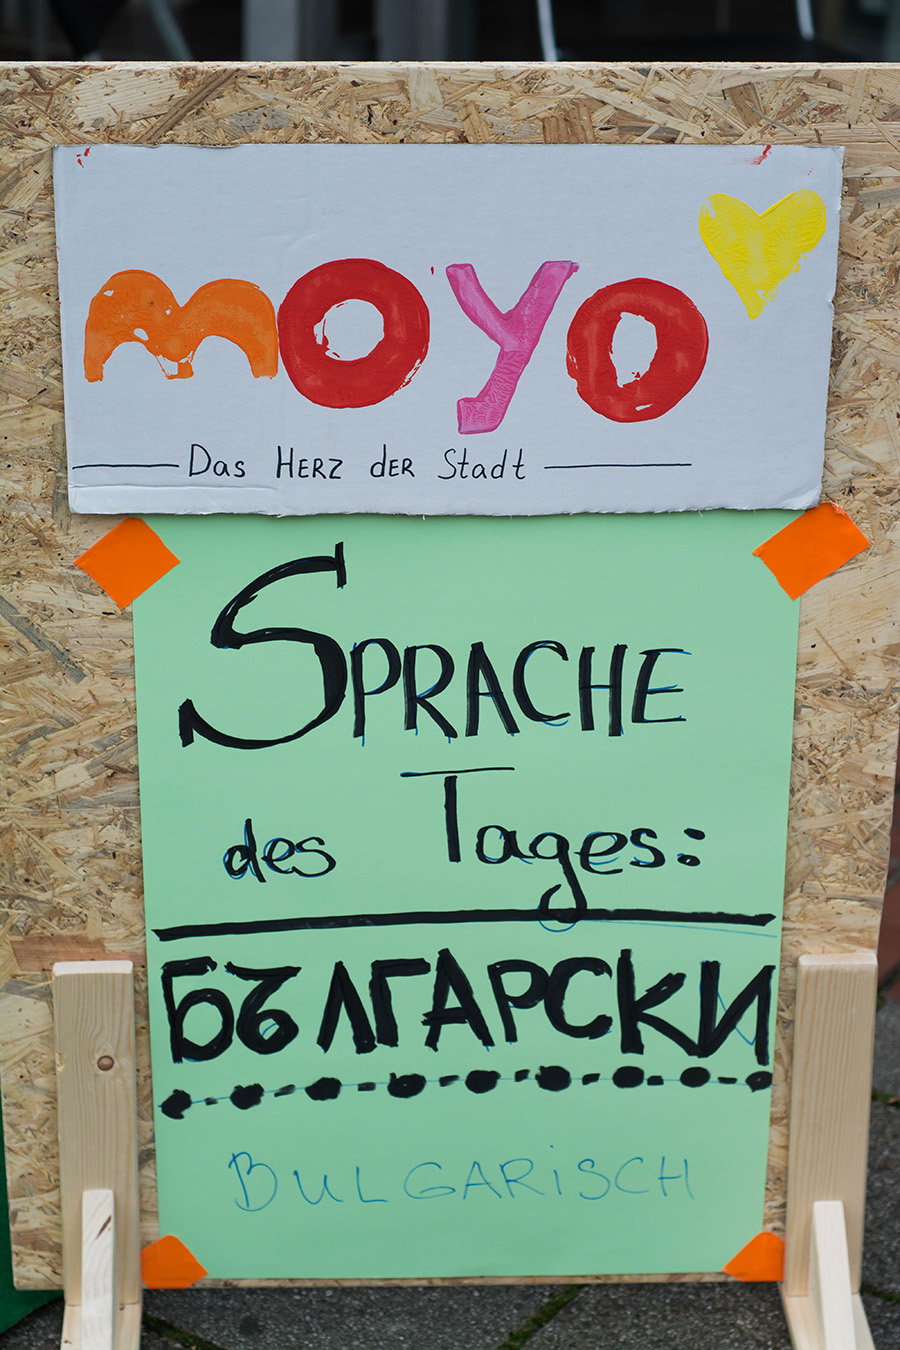 moyo
Das HERZ dER Stadt
SPRACHE
des Tages:
БЪЛГАРСКИ
BULGARiSCH